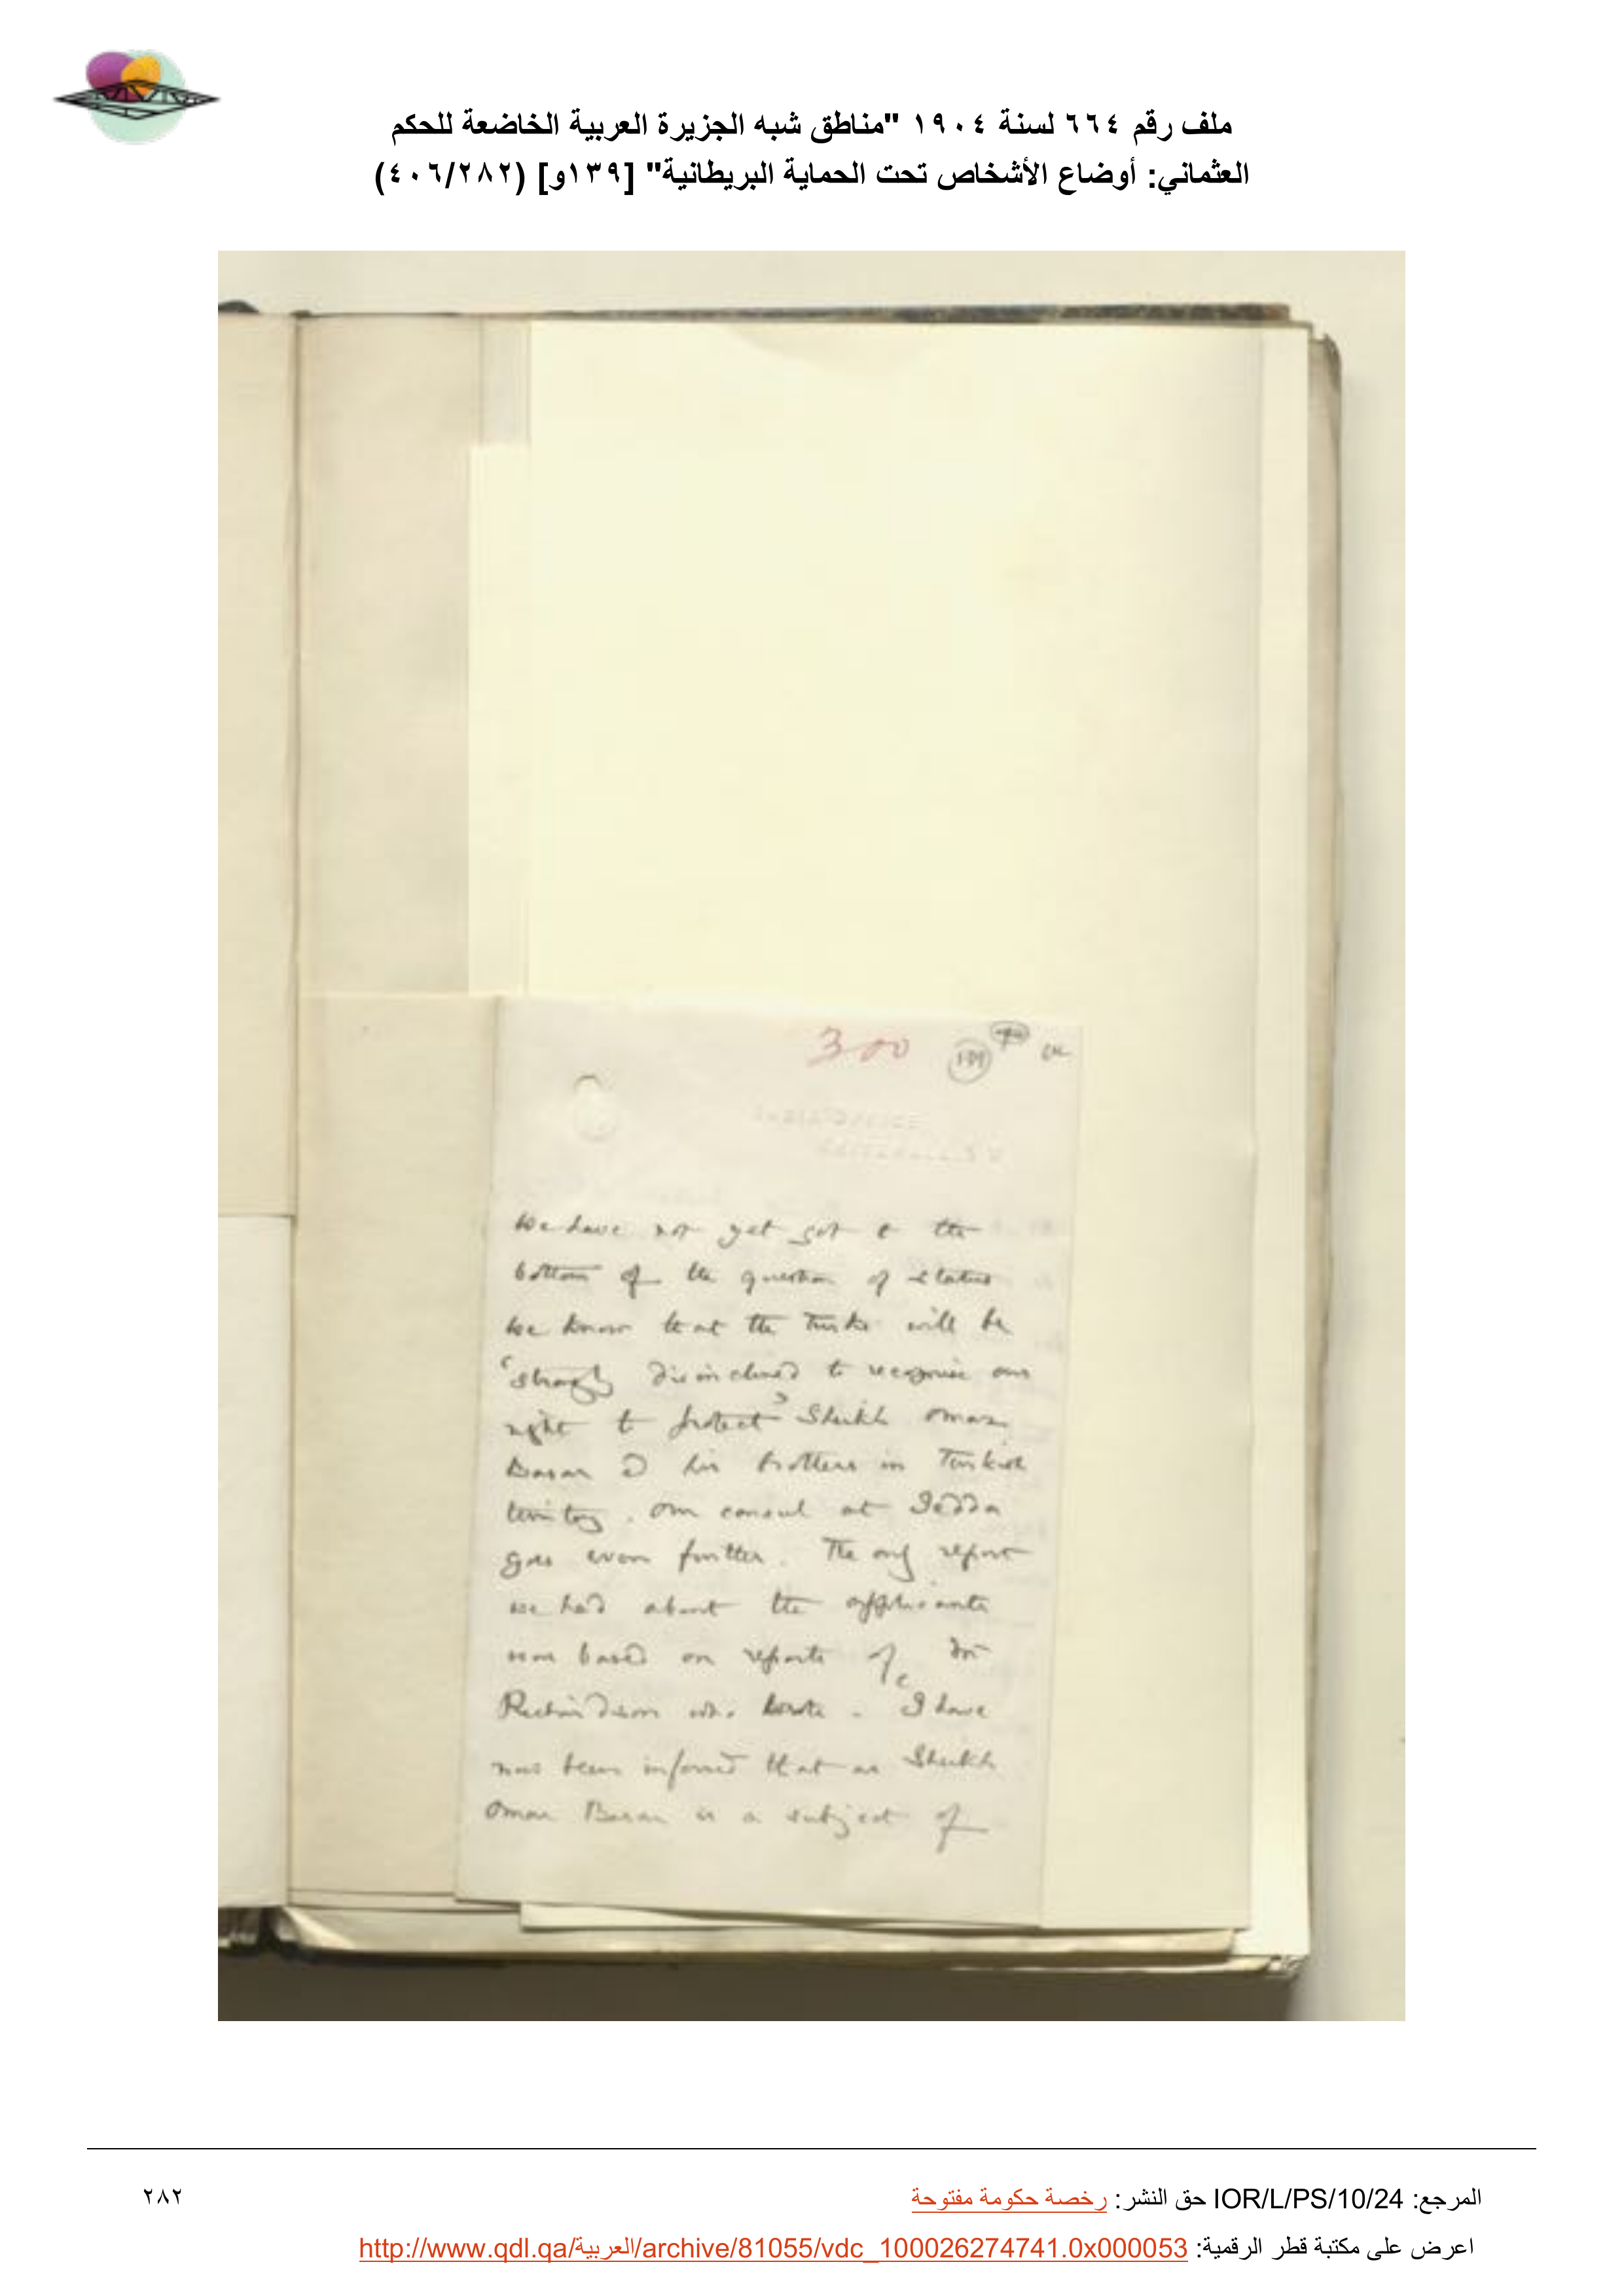 ملف رقم ٦٦٤ لسنة ١٩٠٤ "مناطق شبه الجزيرة العربية الخاضعة للحكم
العثماني: أوضاع الأشخاص تحت الحماية البريطانية" [١٣٩و] (٤٠٦/٢٨٢)
300 139
We have not yet got to the
bottom of the question of status
We know that the Turks will be
'strongly disinclined to recognise our
right to protect' Sheikh Omar
& his brothers in Turkish
territory. Our consul at Jedda
goes even further. The only report
we had about the applicants
was based on reports of Dr
Richardson who wrote - 'I have
now been informed that as Sheikh
Omar is a subject of
المرجع: IOR/L/PS/10/24 حق النشر: رخصة حكومة مفتوحة
٢٨٢
اعرض على مكتبة قطر الرقمية: http://www.qdl.qa/العربية/archive/81055/vdc_100026274741.0x000053